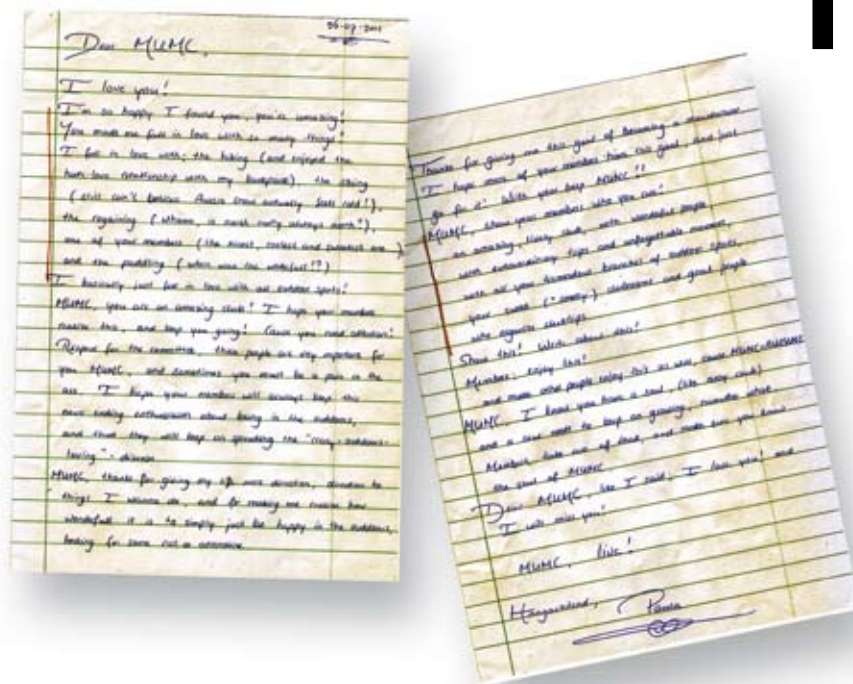 Dear MUMC,
I love you!
I'm so happy I found you, you're amazing!
You made me fall in love with so many things!
I fell in love with: the hiking (and enjoyed the
hate love relationship with my backpack), the skiing
(still can't believe Aussie snow actually feels cold!),
the rogaining (whaaa, is north really always north?),
one of your members (the nicest, and one)
and the paddling (when was the !?)
I basically just fell in love with all outdoor sports!
MUMC, you are an amazing club! I hope your members
realise this, and keep you going! Cause you need attention!
Respect for the committee, these people are very important for
you MUMC, and sometimes you must be a pain in the
ass. I hope your members will always keep this
never ending enthusiasm about being in the outdoors,
and that they will keep on spreading the "crazy-outdoors-
loving"-disease
MUMC, thanks for giving my life more direction, direction to
things I wanna do, and for making me realise how
wonderfull it is to simply just be happy in the outdoors,
looking for some rest or adventure.
Thanks for giving me this goal of becoming a mountaineer
I hope more of your members have this goal, and just
go for it! With your help MUMC!!
MUMC, show your members who you are!
an amazing, living club, with wonderful people
with extraordinary trips and unforgettable moments
with all your tremendous branches of outdoor sports,
your sweet ("smelly") clubrooms and great people
who organise
Show this! Write about this!
Members: enjoy this!
and make other people enjoy this as well, cause MUMC =
MUMC, I know you have a soul, (like every club)
and a soul needs to keep on growing,
Members, take care of that, and make sure you know
the soul of MUMC
Dear MUMC, like I said, I love you! and
I will miss you!
MUMC, live!
Paula